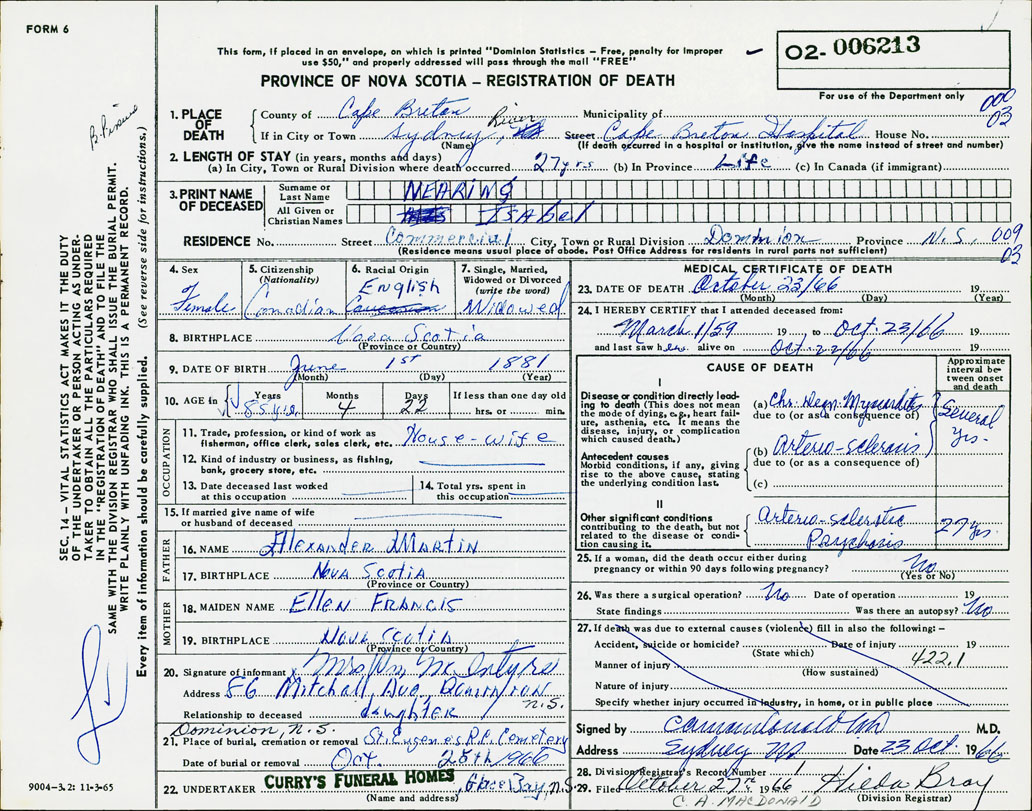 FORM 6
This form, if placed in an envelope, on which is printed "Dominion Statistics – Free, penalty for improper
use $50," and properly addressed will pass through the mail "FREE"
PROVINCE OF NOVA SCOTIA – REGISTRATION OF DEATH
O2- 006213
For use of the Department only
000
03
SEC. 14 – VITAL STATISTICS ACT MAKES IT THE DUTY
OF THE UNDERTAKER OR PERSON ACTING AS UNDER-
TAKER TO OBTAIN ALL THE PARTICULARS REQUIRED
IN THE "REGISTRATION OF DEATH" AND TO FILE THE
SAME WITH THE DIVISION REGISTRAR WHO SHALL ISSUE THE BURIAL PERMIT.
WRITE PLAINLY WITH UNFADING INK. THIS IS A PERMANENT RECORD.
Every item of information should be carefully supplied. (See reverse side for instructions.)
1. PLACE OF DEATH
County of Cape Breton Municipality of
If in City or Town Sydney, River Street Cape Breton Hospital House No.
(Name) (If death occurred in a hospital or institution, give the name instead of street and number)
2. LENGTH OF STAY (in years, months and days)
(a) In City, Town or Rural Division where death occurred 27 yrs (b) In Province Life (c) In Canada (if immigrant)
3. PRINT NAME OF DECEASED
Surname or Last Name NEARING
All Given or Christian Names ISABEL
RESIDENCE No. Street Commercial City, Town or Rural Division Dominion Province N.S. 009
03
(Residence means usual place of abode. Post Office Address for residents in rural parts not sufficient)
4. Sex Female
5. Citizenship (Nationality) Canadian
6. Racial Origin English
7. Single, Married, Widowed or Divorced (write the word) Widowed
8. BIRTHPLACE Nova Scotia
(Province or Country)
9. DATE OF BIRTH June 1st 1881
(Month) (Day) (Year)
10. AGE in Years 85 yrs. Months 4 Days 22 If less than one day old
hrs. or min.
OCCUPATION
11. Trade, profession, or kind of work as
fisherman, office clerk, sales clerk, etc. House-wife
12. Kind of industry or business, as fishing,
bank, grocery store, etc.
13. Date deceased last worked
at this occupation
14. Total yrs. spent in
this occupation
15. If married give name of wife
or husband of deceased
FATHER
16. NAME Alexander Martin
17. BIRTHPLACE Nova Scotia
(Province or Country)
MOTHER
18. MAIDEN NAME Ellen Francis
19. BIRTHPLACE Nova Scotia
(Province or Country)
20. Signature of informant Mrs Wm McIntyre
Address 56 Mitchall Ave Dominion
N.S.
Relationship to deceased daughter
Dominion, N.S.
21. Place of burial, cremation or removal St. Eugenes R.C. Cemetery
Date of burial or removal Oct. 25th 1966
22. UNDERTAKER CURRY'S FUNERAL HOMES, Glace Bay, N.S.
(Name and address)
9004-3.2: 11-3-65
MEDICAL CERTIFICATE OF DEATH
23. DATE OF DEATH October 23/66 19
(Month) (Day) (Year)
24. I HEREBY CERTIFY that I attended deceased from:
March 1/59 19 to Oct. 23/66 19
and last saw her alive on Oct. 22/66 19
CAUSE OF DEATH
Approximate interval between onset and death
I
Disease or condition directly lead-
ing to death (This does not mean
the mode of dying, e.g., heart fail-
ure, asthenia, etc. It means the
disease, injury, or complication
which caused death.)
(a) Chr. Degn. Myocarditis
due to (or as a consequence of)
Several yrs.
Antecedent causes
Morbid conditions, if any, giving
rise to the above cause, stating
the underlying condition last.
(b) Arterio-sclerosis
due to (or as a consequence of)
(c)
II
Other significant conditions
contributing to the death, but not
related to the disease or condi-
tion causing it.
Arterio-sclerotic
Psychosis
27 yrs.
25. If a woman, did the death occur either during
pregnancy or within 90 days following pregnancy? No
(Yes or No)
26. Was there a surgical operation? No Date of operation 19
State findings Was there an autopsy? No
27. If death was due to external causes (violence) fill in also the following: –
Accident, suicide or homicide? Date of injury 19
(State which) 422.1
Manner of injury
(How sustained)
Nature of injury
Specify whether injury occurred in industry, in home, or in public place
Signed by M.D.
Address Sydney NS Date 23 Oct. 1966
28. Division Registrar's Record Number
29. Filed October 27th 1966 Hilda Bray
C. A. MACDONALD (Division Registrar)